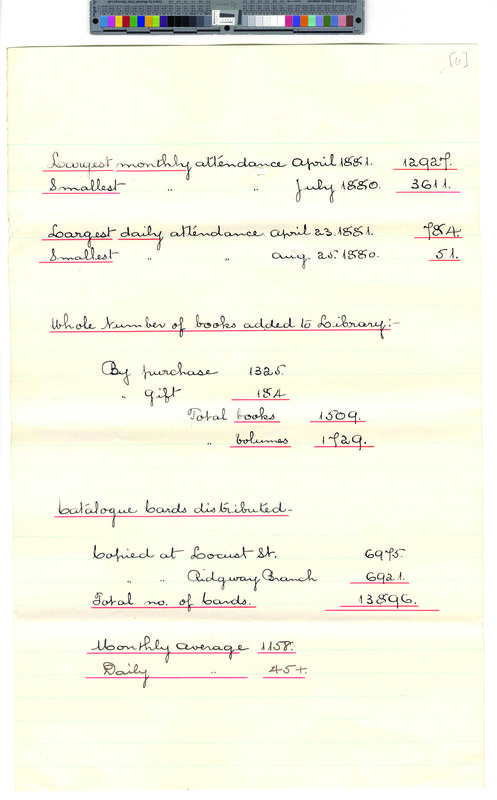 [6]
Largest monthly attendance April 1881. 12927.
Smallest " " July 1880. 3611.
Largest daily attendance April 23. 1881. 784.
Smallest " " Aug. 25. 1880. 51.
Whole Number of books added to Library:-
By purchase 1325.
" gift 184
Total books 1509.
" volumes 1729.
Catalogue Cards distributed-
Copied at Locust St. 6975.
" " Ridgway Branch 6921.
Total no. of Cards. 13896.
Monthly average 1158.
Daily " 45+.